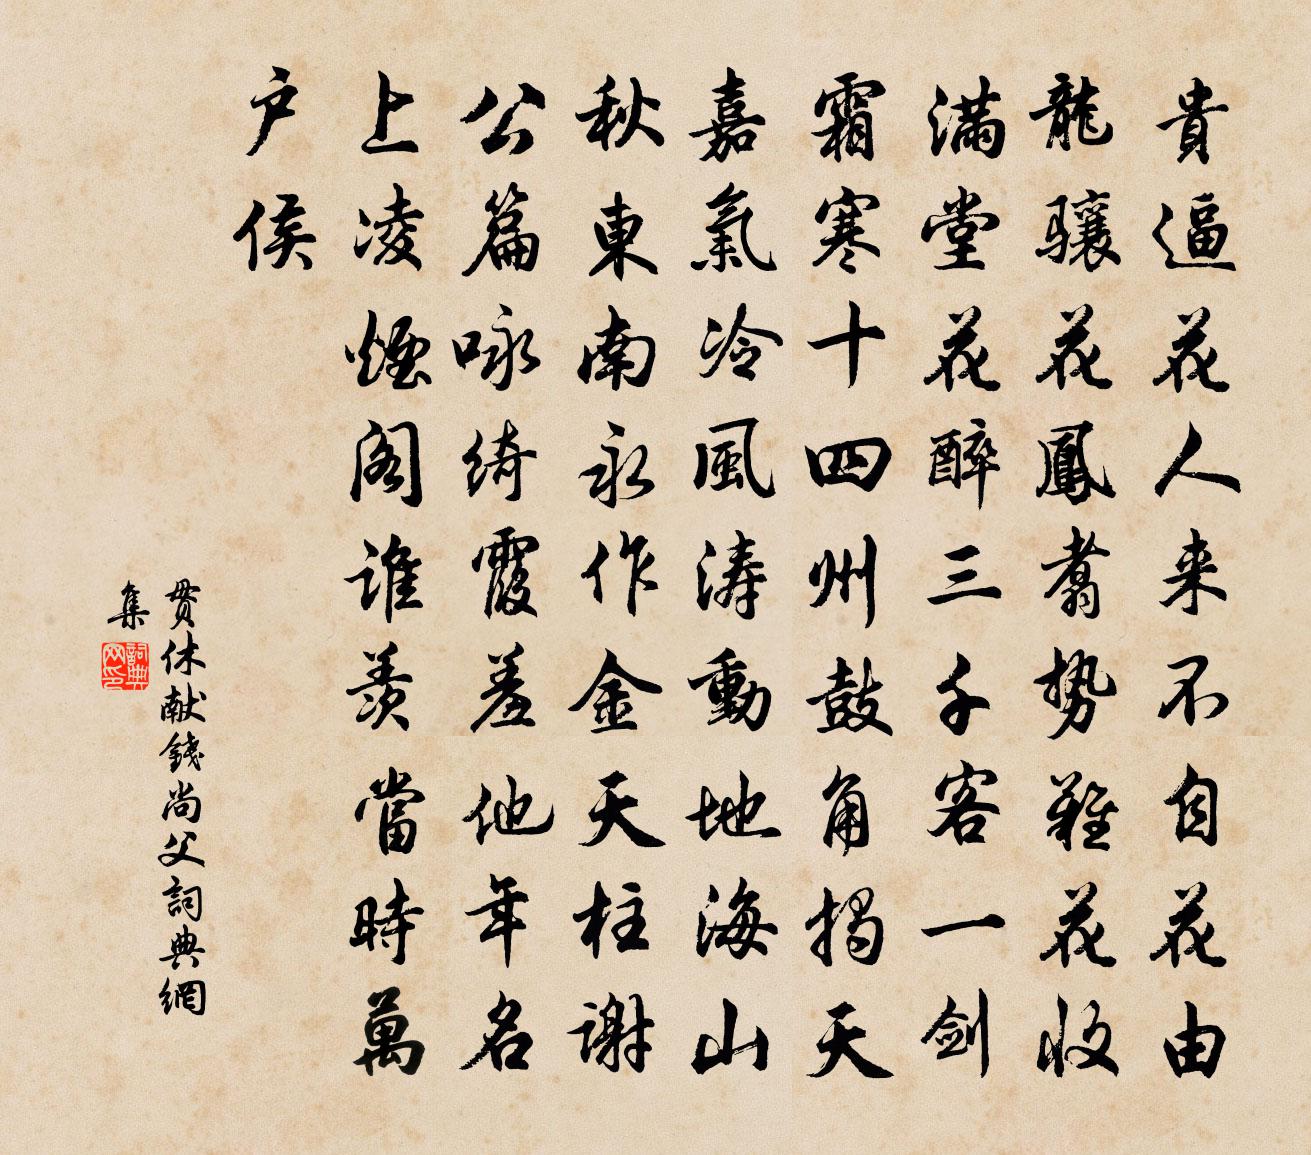 貴逼花人来不自花由
龍驤花鳳翥勢難花收
滿堂花醉三千客一劍
霜寒十四州鼓角揭天
嘉氣冷風濤動地海山
秋東南永作金天柱謝
公篇咏綺霞羞他年名
上凌煙閣誰羨當時萬
户侯
貫休献錢尚父詞典網
集
詞典
网印